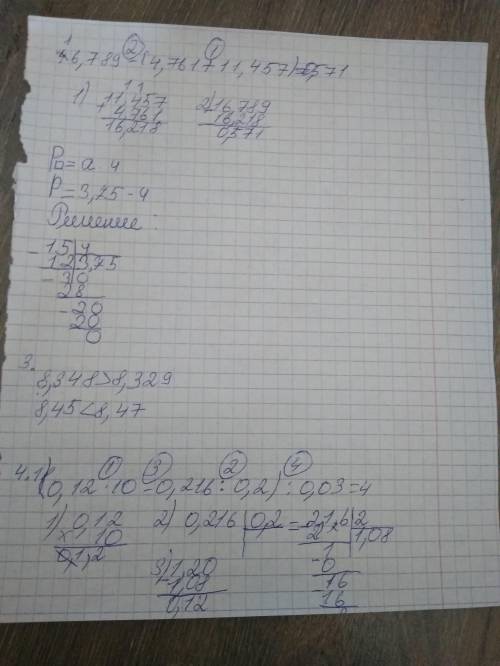 1
16,789-(4,761+11,457)=0,571
1) 11,457 2) 16,789
4,761 16,218
16,218 0,571
P□=a·4
P=3,75-4
Решение:
15|4
12|3,75
30
28
20
20
0
3.
8,348>8,329
8,45<8,47
4.1(0,12·10-0,216:0,2):0,03=4
1) 0,12 2) 0,216|0,2=2,16|2
×10 2 |1,08
0,1,2 1
3) 1,20 -0
-1,08 16
0,12 16